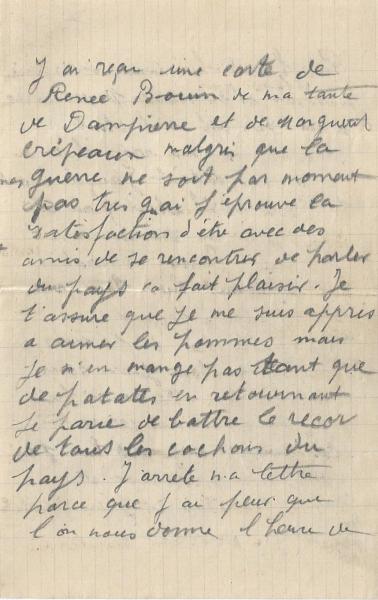 J ai reçu une carte de
Renée Bouin de ma tante
de Dampierre et de Margueritte
Crépeaux malgris que la
guerre ne soit par moment
pas tres gai j'éprouve la
satisfaction d'être avec des
amis de se rencontrer de parler
du pays ca fait plaisir. Je
t'assure que je me suis appris
a aimer les pommes mais
Je m'en mange pas tant que
de patates en retournant
Je parie de battre le recor
de tous les cochons du
pays. J'arrête ma lettre
parce que j'ai peur que
l'on nous donne l'heure de